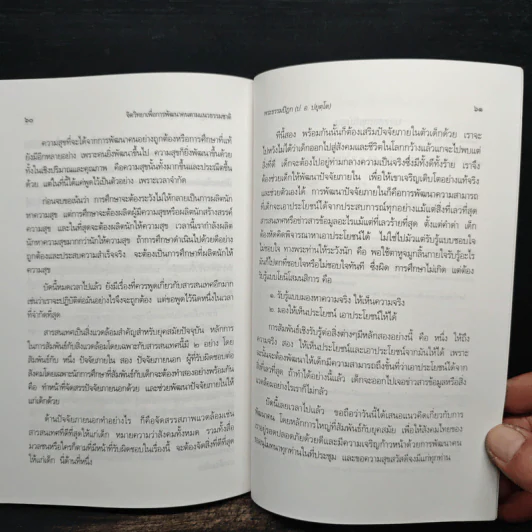 ๖๐
จิตวิทยาเพื่อการพัฒนาคนตามแนวธรรมชาติ
ความสุขที่จะได้จากการพัฒนาคนอย่างถูกต้องหรือการศึกษาที่แท้
ยังมีอีกหลายอย่าง เพราะคนยิ่งพัฒนาขึ้นไป ความสุขก็ยิ่งพัฒนาขึ้นด้วย
ทั้งในเชิงปริมาณและคุณภาพ คือความสุขนั้นทั้งมากขึ้นและประณีตขึ้น
ด้วย แต่ในที่นี้ได้แค่พูดไว้เป็นตัวอย่าง เพราะเวลาจำกัด
ก่อนจบขอเน้นว่า การศึกษาจะต้องระวังไม่ให้กลายเป็นการผลิตนัก
หาความสุข แต่การศึกษาจะต้องผลิตผู้มีความสุขหรือผลิตนักสร้างสรรค์
ความสุข และในที่สุดจะต้องผลิตนักให้ความสุข เวลานี้เรากำลังผลิต
นักหาความสุขมากกว่านักให้ความสุข ถ้าการศึกษาดำเนินไปด้วยดีอย่าง
ถูกต้องและประสบความสำเร็จจริง จะต้องเป็นการศึกษาที่ผลิตนักให้
ความสุข
ปัดนี้หมดเวลาไปแล้ว ยังมีเรื่องที่ควรพูดเกี่ยวกับสารสนเทศอีกมาก
เช่นว่าเราจะปฏิบัติต่อมันอย่างไรจึงจะถูกต้อง แต่ขอพูดไว้นิดหนึ่งในเวลา
ที่จำกัดว่า
สารสนเทศเป็นสิ่งแวดล้อมสำคัญสำหรับยุคสมัยปัจจุบัน หลักการ
ในการสัมพันธ์กับสิ่งแวดล้อมโดยเฉพาะกับสารสนเทศนี้มี ๒ อย่าง โดย
สัมพันธ์กับ หนึ่ง ปัจจัยภายใน สอง ปัจจัยภายนอก ผู้ที่รับผิดชอบต่อ
สังคมโดยเฉพาะนักการศึกษาที่สัมพันธ์กับเด็กจะต้องทำสองอย่างพร้อมกัน
คือ ทำหน้าที่จัดสรรปัจจัยภายนอกด้วย และช่วยพัฒนาปัจจัยภายในให้
แก่เด็กด้วย
ด้านปัจจัยภายนอกทำอย่างไร ก็คือจัดสรรสภาพแวดล้อมเช่น
สารสนเทศที่ดีที่สุดให้แก่เด็ก หมายความว่าสังคมทั้งหมด รวมทั้งสื่อ
มวลชนหรือใครก็ตามที่มีหน้าที่รับผิดชอบในเรื่องนี้ จะต้องจัดสิ่งที่ดีที่สุด
ให้แก่เด็ก นี้ด้านที่หนึ่ง
พระธรรมปิฎก (ป. อ. ปยุตฺโต)
๖๑
ที่นี้สอง พร้อมกันนั้นก็ต้องเสริมปัจจัยภายในตัวเด็กด้วย เราจะ
ไปหวังไม่ได้ว่าเด็กออกไปสู่สังคมและชีวิตในโลกกว้างแล้วแกจะไปพบแต่
สิ่งที่ดี เด็กจะต้องไปอยู่ท่ามกลางความเป็นจริงซึ่งมีทั้งดีทั้งร้าย เราจึง
ต้องช่วยเด็กให้พัฒนาปัจจัยภายใน เพื่อให้เขาเจริญเติบโตอย่างแท้จริง
และช่วยตัวเองได้ การพัฒนาปัจจัยภายในก็คือการพัฒนาความสามารถ
ที่เด็กจะเอาประโยชน์ได้จากประสบการณ์ทุกอย่างแม้แต่สิ่งที่เลวที่สุด
สารสนเทศหรือข่าวสารข้อมูลอะไรแม้แต่ที่เลวร้ายที่สุด ตั้งแต่คำด่า เด็ก
ต้องหัดคิดพิจารณาหาเอาประโยชน์ได้ ไม่ใช่ไปมัวแต่รับรู้แบบชอบใจ
ไม่ชอบใจ ทางพระท่านให้ระวังนัก คือ พอใช้ตาหูจมูกลิ้นกายใจรับรู้อะไร
มันก็ไปตกที่ชอบใจหรือไม่ชอบใจทันที ซึ่งผิด การศึกษาไม่เกิด แต่ต้อง
รับรู้แบบโยนิโสมนสิการ คือ
๑. รับรู้แบบมองหาความจริง ให้เห็นความจริง
๒. มองให้เห็นประโยชน์ เอาประโยชน์ให้ได้
การสัมพันธ์เชิงรับรู้ต่อสิ่งต่างๆมีหลักสองอย่างนี้ คือ หนึ่ง ให้ถึง
ความจริง สอง ให้เห็นประโยชน์และเอาประโยชน์จากมันให้ได้ เพราะ
ฉะนั้นจะต้องพัฒนาให้เด็กมีความสามารถถึงขั้นที่ว่าเอาประโยชน์ได้จาก
สิ่งที่เลวที่สุด ถ้าทำได้อย่างนี้แล้ว เด็กจะออกไปเจอข่าวสารข้อมูลหรือสิ่ง
แวดล้อมอย่างไรเราก็ไม่กลัว
ปัดนี้เลยเวลาไปแล้ว ขอถือว่าวันนี้ได้เสนอแนวคิดเกี่ยวกับการ
พัฒนาคน โดยหลักการใหญ่ที่สัมพันธ์กับยุคสมัย เพื่อให้สังคมไทยของ
เราอยู่รอดปลอดภัยด้วยดีและมีความเจริญก้าวหน้าด้วยการพัฒนาคน
ขออนุโมทนาทุกท่านในที่ประชุม และขอความสุขสวัสดีจงมีแก่ทุกท่าน